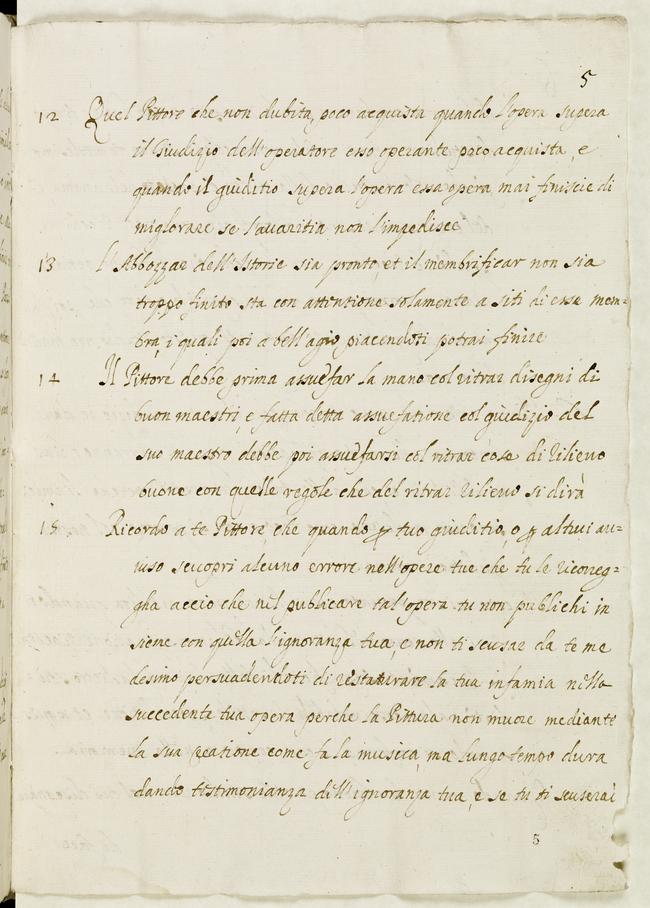 5
12 Quel Pittore che non dubita, poco acquista quando l'opera supera
il Giudizio dell'operatore esso operante poco acquista, e
quando il giuditio supera l'opera essa opera mai finisce di
migliorare se l'auaritia non l'impedisce
13 l'Abbozzar dell'Istorie sia pronto, et il membrificar non sia
troppo finito sta con attentione solamente a siti di esse mem=
bra, i quali poi a bell'agio piacendoti potrai finire
14 Il Pittore debbe prima assuefar la mano col ritrar disegni di
buon maestri, e fatta detta assuefatione col giudizio del
suo maestro debbe poi assuefarsi col ritrar cose di rilieuo
buone con quelle regole che del ritrar rilieuo si dirà
15 Ricordo a te Pittore che quando ꝑ tuo giuditio, o ꝑ altrui au=
uiso scuopri alcuno errore nell'opere tue che tu le ricoreg=
gha accio che nel publicare tal'opera tu non publichi in
sieme con quella l'ignoranza tua, e non ti scusar da te me
desimo persuadendoti di restaurare la tua infamia nella
succedente tua opera perche la Pittura non muore mediante
la sua creatione come fa la musica, ma lungo tempo dura
dando testimonianza dell'ignoranza tua, e se tu ti scuserai
5